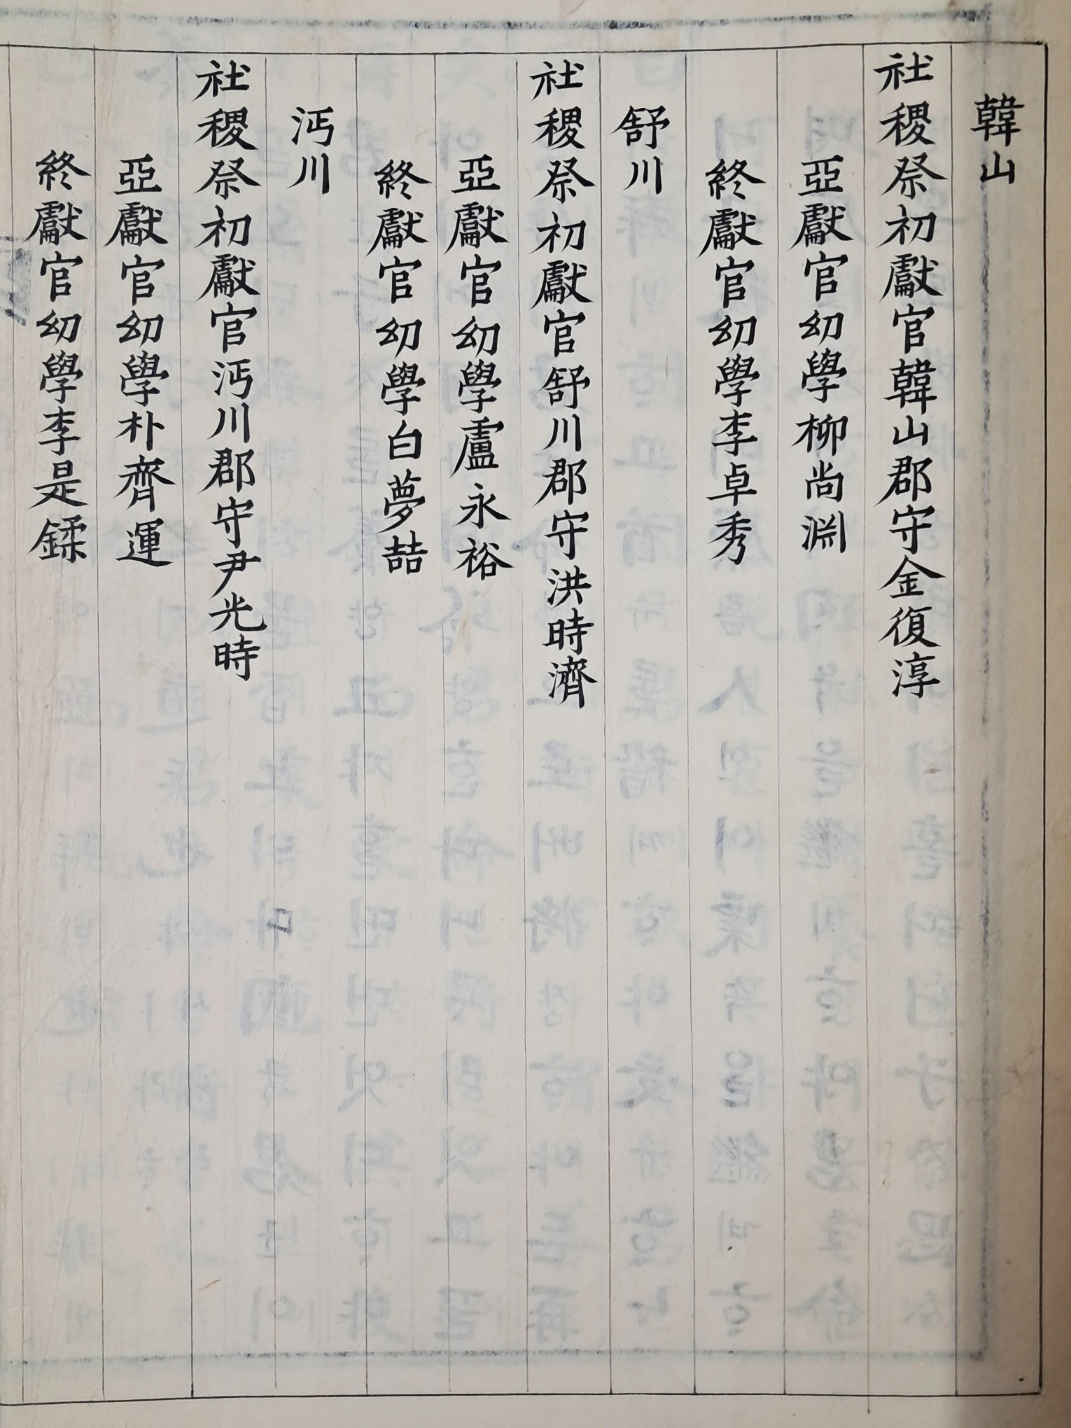 韓山
社稷祭初獻官韓山郡守金復淳
亞獻官幼學柳尚淵
終獻官幼學李卓秀
舒川
社稷祭初獻官舒川郡守洪時濟
亞獻官幼學盧永裕
終獻官幼學白夢喆
沔川
社稷祭初獻官沔川郡守尹光時
亞獻官幼學朴齊運
終獻官幼學李是鍒